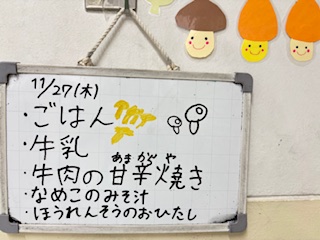 11/27(木)
・ごはん
・牛乳
あまがらや
・牛肉の甘辛焼き
・なめこのみそ汁
・ほうれんそうのおひたし